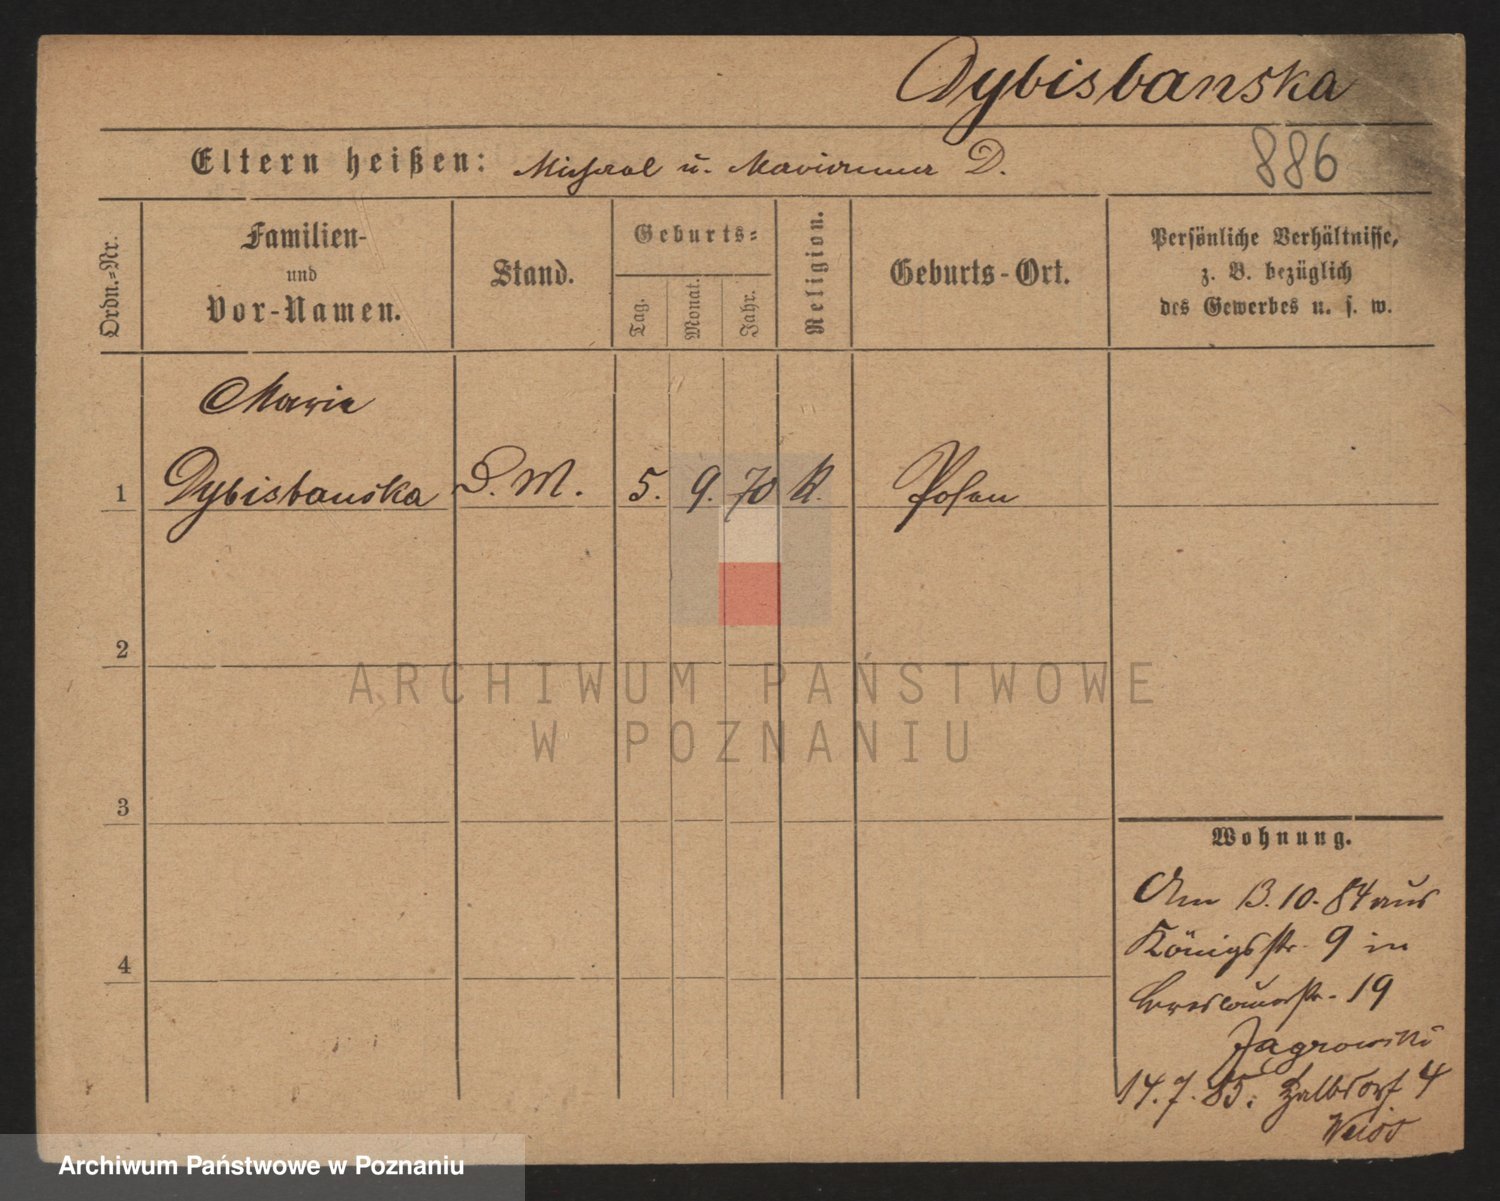 Dybisbanska
Eltern heißen: Michael u. Marianna D.
886
Ordn.-Nr.
Familien-
und
Vor-Namen.
Stand.
Geburts-
Tag.
Monat.
Jahr.
Religion.
Geburts-Ort.
Persönliche Verhältnisse,
z. B. bezüglich
des Gewerbes u. s. w.
Marie
1 Dybisbanska D. M. 5. 9. 70 K. Posen
2
3
4
Wohnung.
Am 13.10.84 aus
Königsstr. 9 in
Breslauerstr. 19
Jagrowski
14.7.85: Halbdorf 4
Weiss
ARCHIWUM PAŃSTWOWE
W POZNANIU
Archiwum Państwowe w Poznaniu